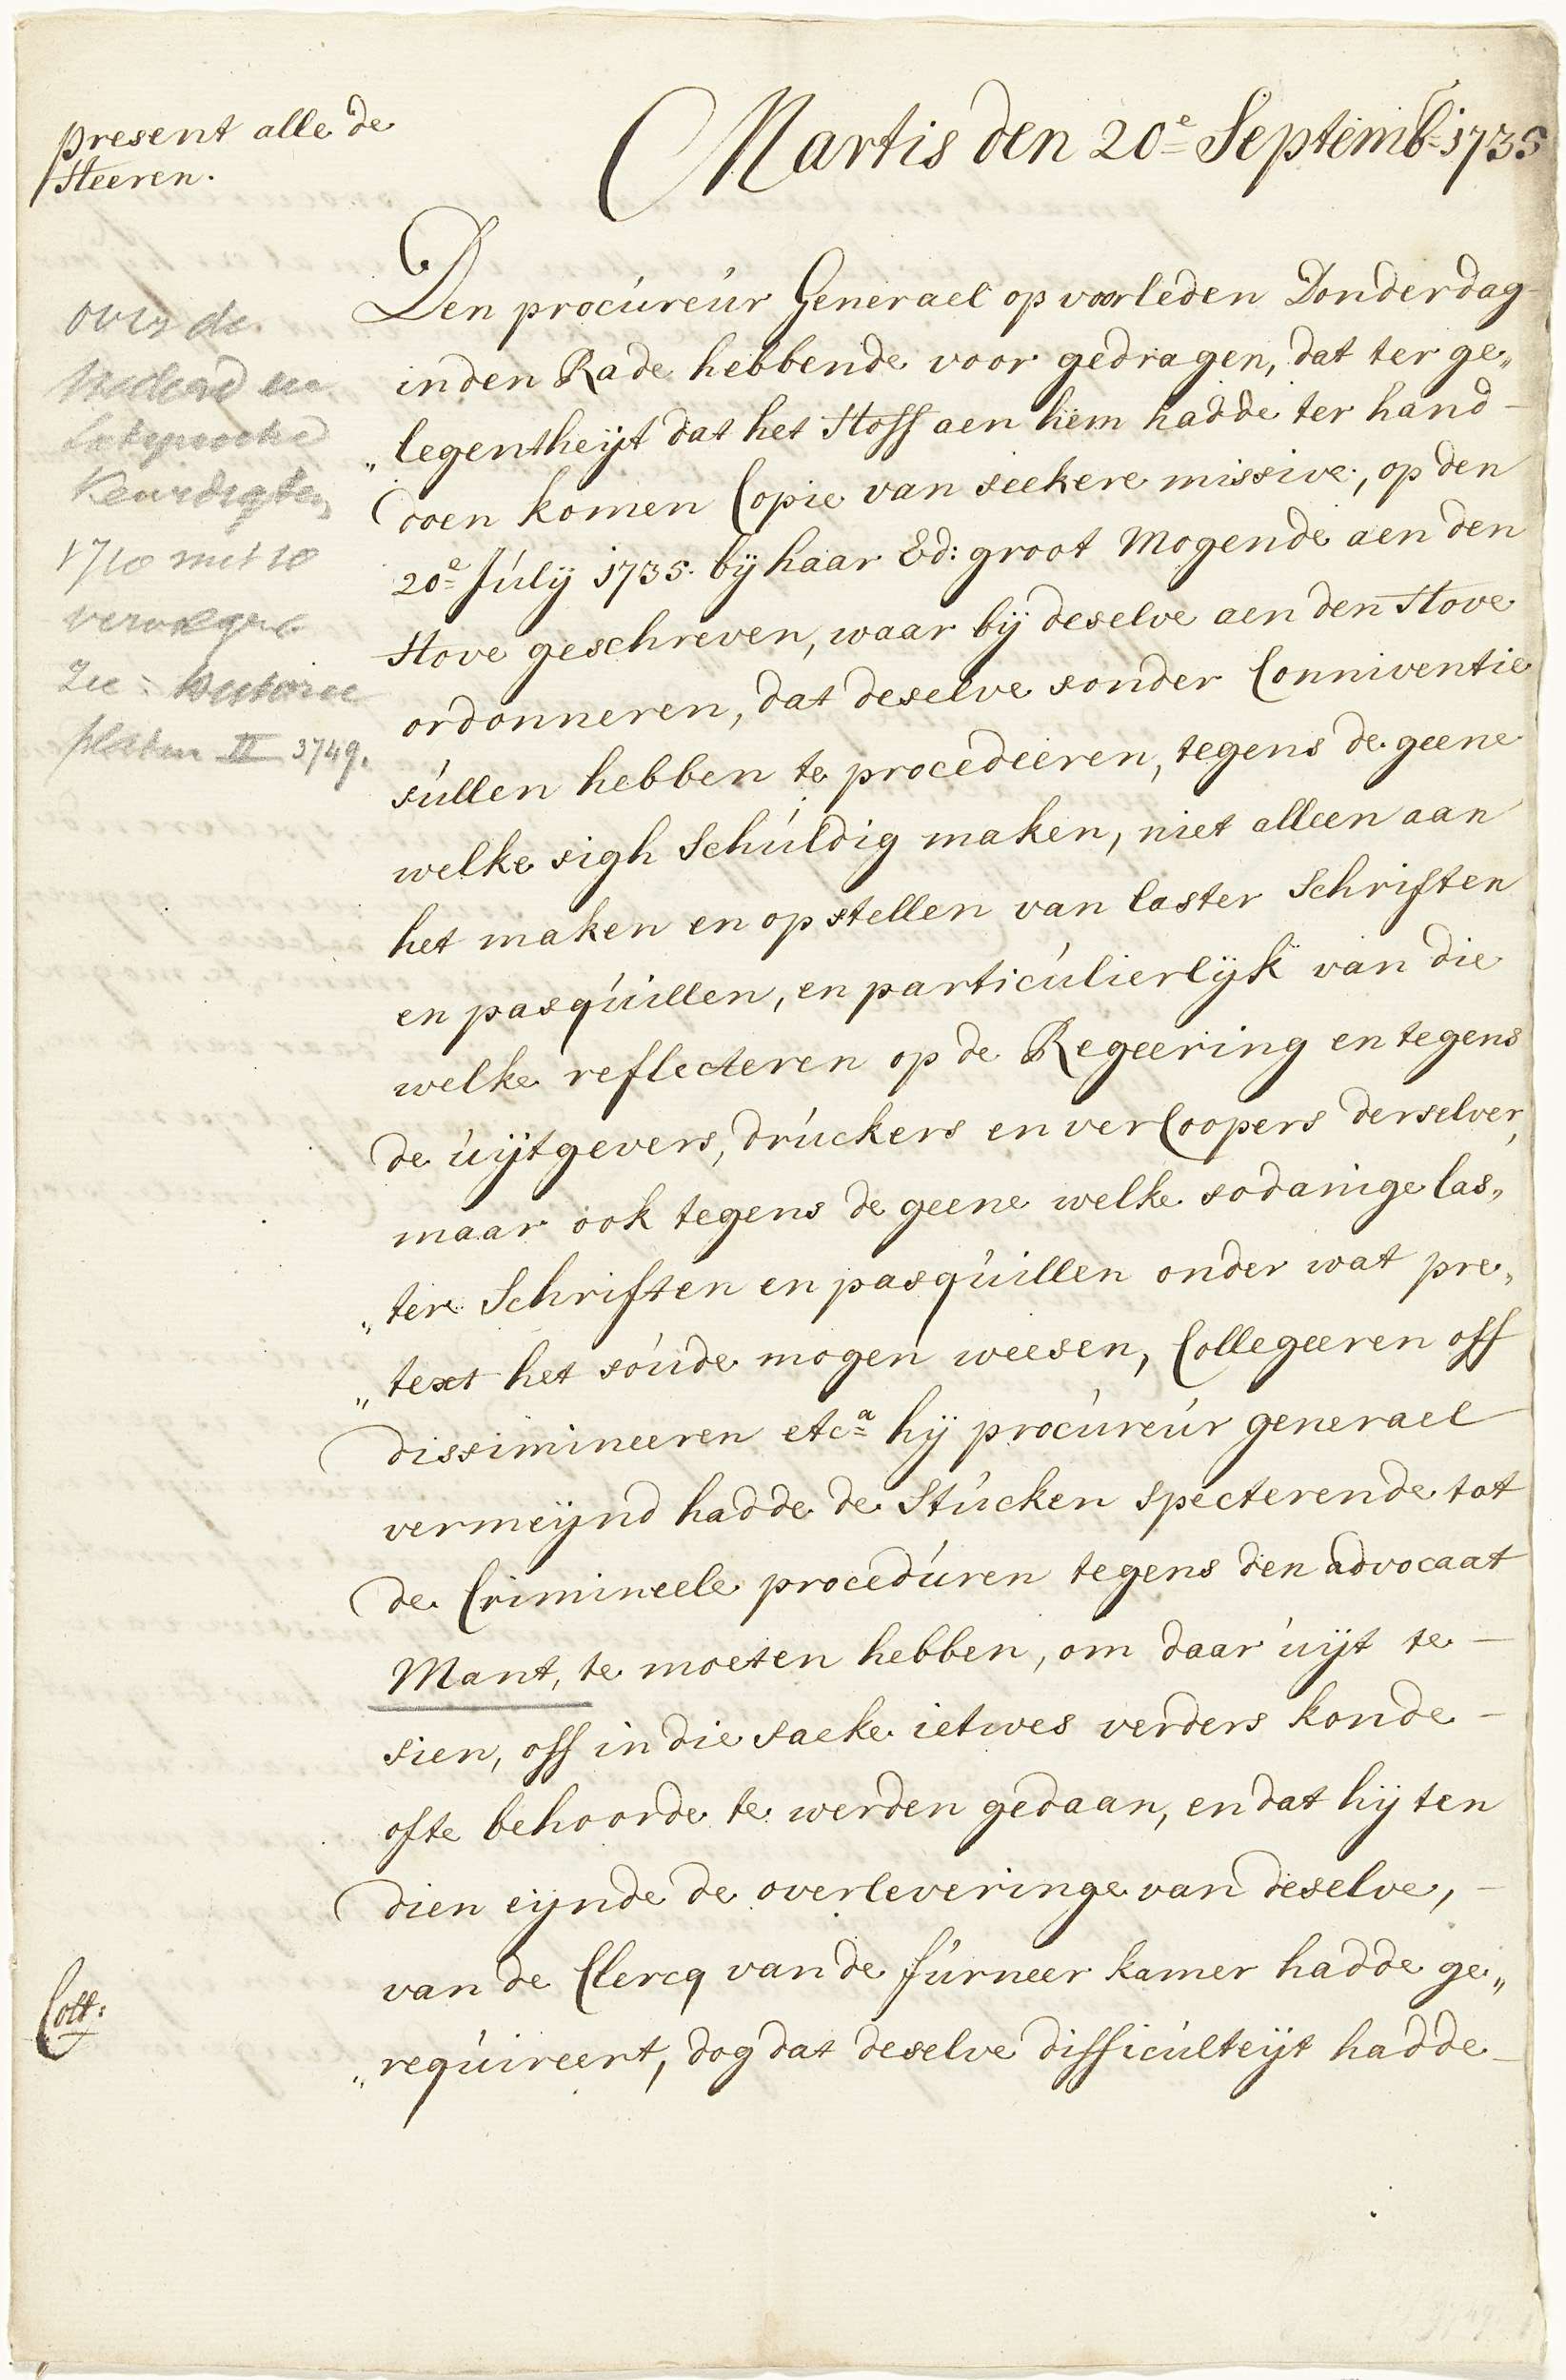 present alle de
Heeren.
Martis den 20e Septemb: 1735
Den procureur Generael op voorleden Donderdag
inden Rade hebbende voor gedragen, dat ter ge„
„legentheijt dat het Hoff aen hem hadde ter hand
doen komen Copie van seekere missive, op den
20e Julij 1735. bij haar Ed: groot Mogende aen den
Hove geschreven, waar bij deselve aen den Hove
ordonneren, dat deselve sonder Conniventie
sullen hebben te procedeeren, tegens de geene
welke sigh Schuldig maken, niet alleen aan
het maken en opstellen van laster Schriften
en pasquillen, en particulierlijk van die
welke reflecteren op de Regeering en tegens
de uijtgevers, druckers en verCoopers derselver,
maar ook tegens de geene welke sodanige las„
„ter Schriften en pasquillen onder wat pre„
„text het soude mogen weesen, Collegeeren off
dissimineeren etca hij procureur generael
vermeijnd hadde de Stucken specterende tot
de Crimineele proceduren tegens den advocaat
Mant, te moeten hebben, om daar uijt te
sien, off in die saeke ietwes verders konde
ofte behoorde te werden gedaan, en dat hij ten
dien eijnde de overleveringe van deselve,
van de Clercq van de furneer kamer hadde ge„
„requireert, dog dat deselve difficulteijt hadde
over de
en
Keurdigten
1710 met 10
vervolgen
Zie: Historie
platen II 3749.
Coll: